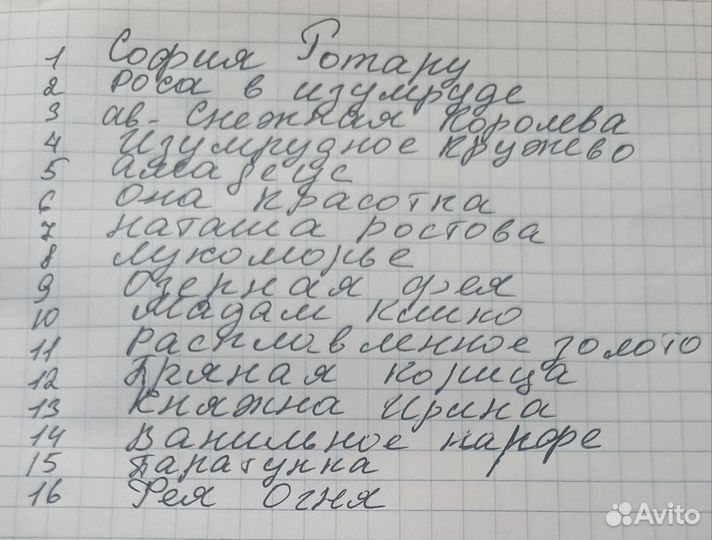 1 София Ротару
2 Роса в изумруде
3 ав- Снежная Королева
4 Изумрудное кружево
5 Амадеус
6 Она красотка
7 Наташа Ростова
8 Лукоморье
9 Озерная фея
10 Мадам Клико
11 Расплавленное золото
12 Пряная корица
13 Княжна Ирина
14 Ванильное парфе
15 Паратунка
16 Фея Огня
Avito